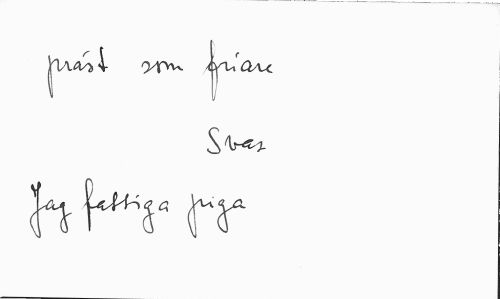 präst som friare
Svar
Jag fattiga piga